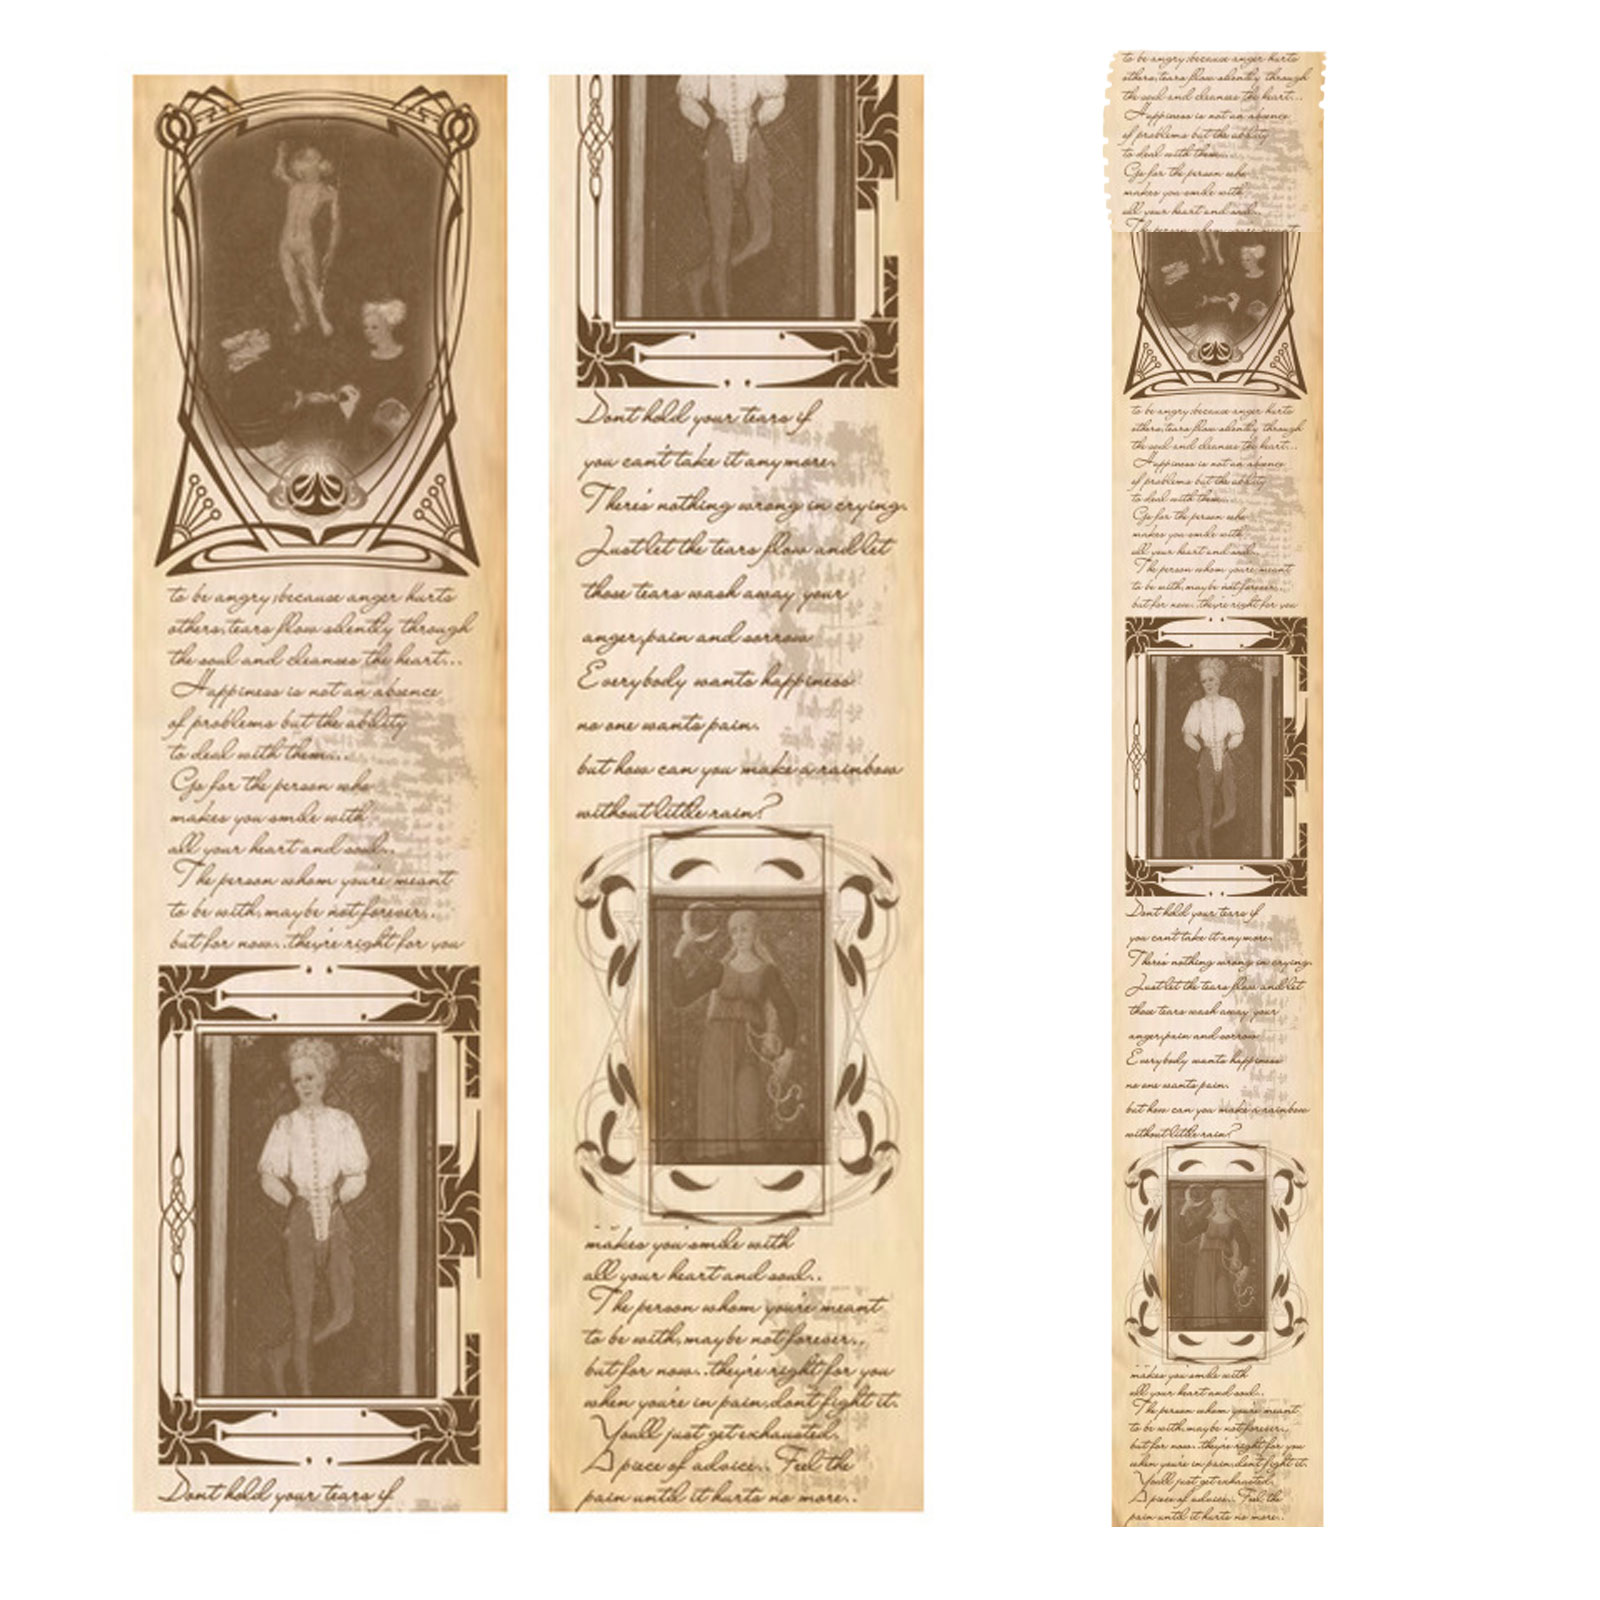 to be angry, because anger hurts
others, tears flow silently through
the soul and cleanses the heart...
Happiness is not an absence
of problems but the ability
to deal with them...
Go for the person who
makes you smile with
all your heart and soul..
The person whom you're meant
to be with, maybe not forever...
but for now..they're right for you
Dont hold your tears if
Dont hold your tears if
you can't take it any more.
There's nothing wrong in crying.
Just let the tears flow and let
those tears wash away your
anger, pain and sorrow
Everybody wants happiness
no one wants pain.
but how can you make a rainbow
without little rain?
makes you smile with
all your heart and soul..
The person whom you're meant
to be with, maybe not forever...
but for now..they're right for you
when you're in pain, dont fight it.
Youll just get exhausted.
A piece of advice.. Feel the
pain until it hurts no more..
to be angry, because anger hurts
others, tears flow silently through
the soul and cleanses the heart...
Happiness is not an absence
of problems but the ability
to deal with them...
Go for the person who
makes you smile with
all your heart and soul..
The person whom you're meant
to be angry, because anger hurts
others, tears flow silently through
the soul and cleanses the heart...
Happiness is not an absence
of problems but the ability
to deal with them...
Go for the person who
makes you smile with
all your heart and soul..
The person whom you're meant
to be with, maybe not forever...
but for now..they're right for you
Dont hold your tears if
you can't take it any more.
There's nothing wrong in crying.
Just let the tears flow and let
those tears wash away your
anger, pain and sorrow
Everybody wants happiness
no one wants pain.
but how can you make a rainbow
without little rain?
makes you smile with
all your heart and soul..
The person whom you're meant
to be with, maybe not forever...
but for now..they're right for you
when you're in pain, dont fight it.
Youll just get exhausted.
A piece of advice.. Feel the
pain until it hurts no more..